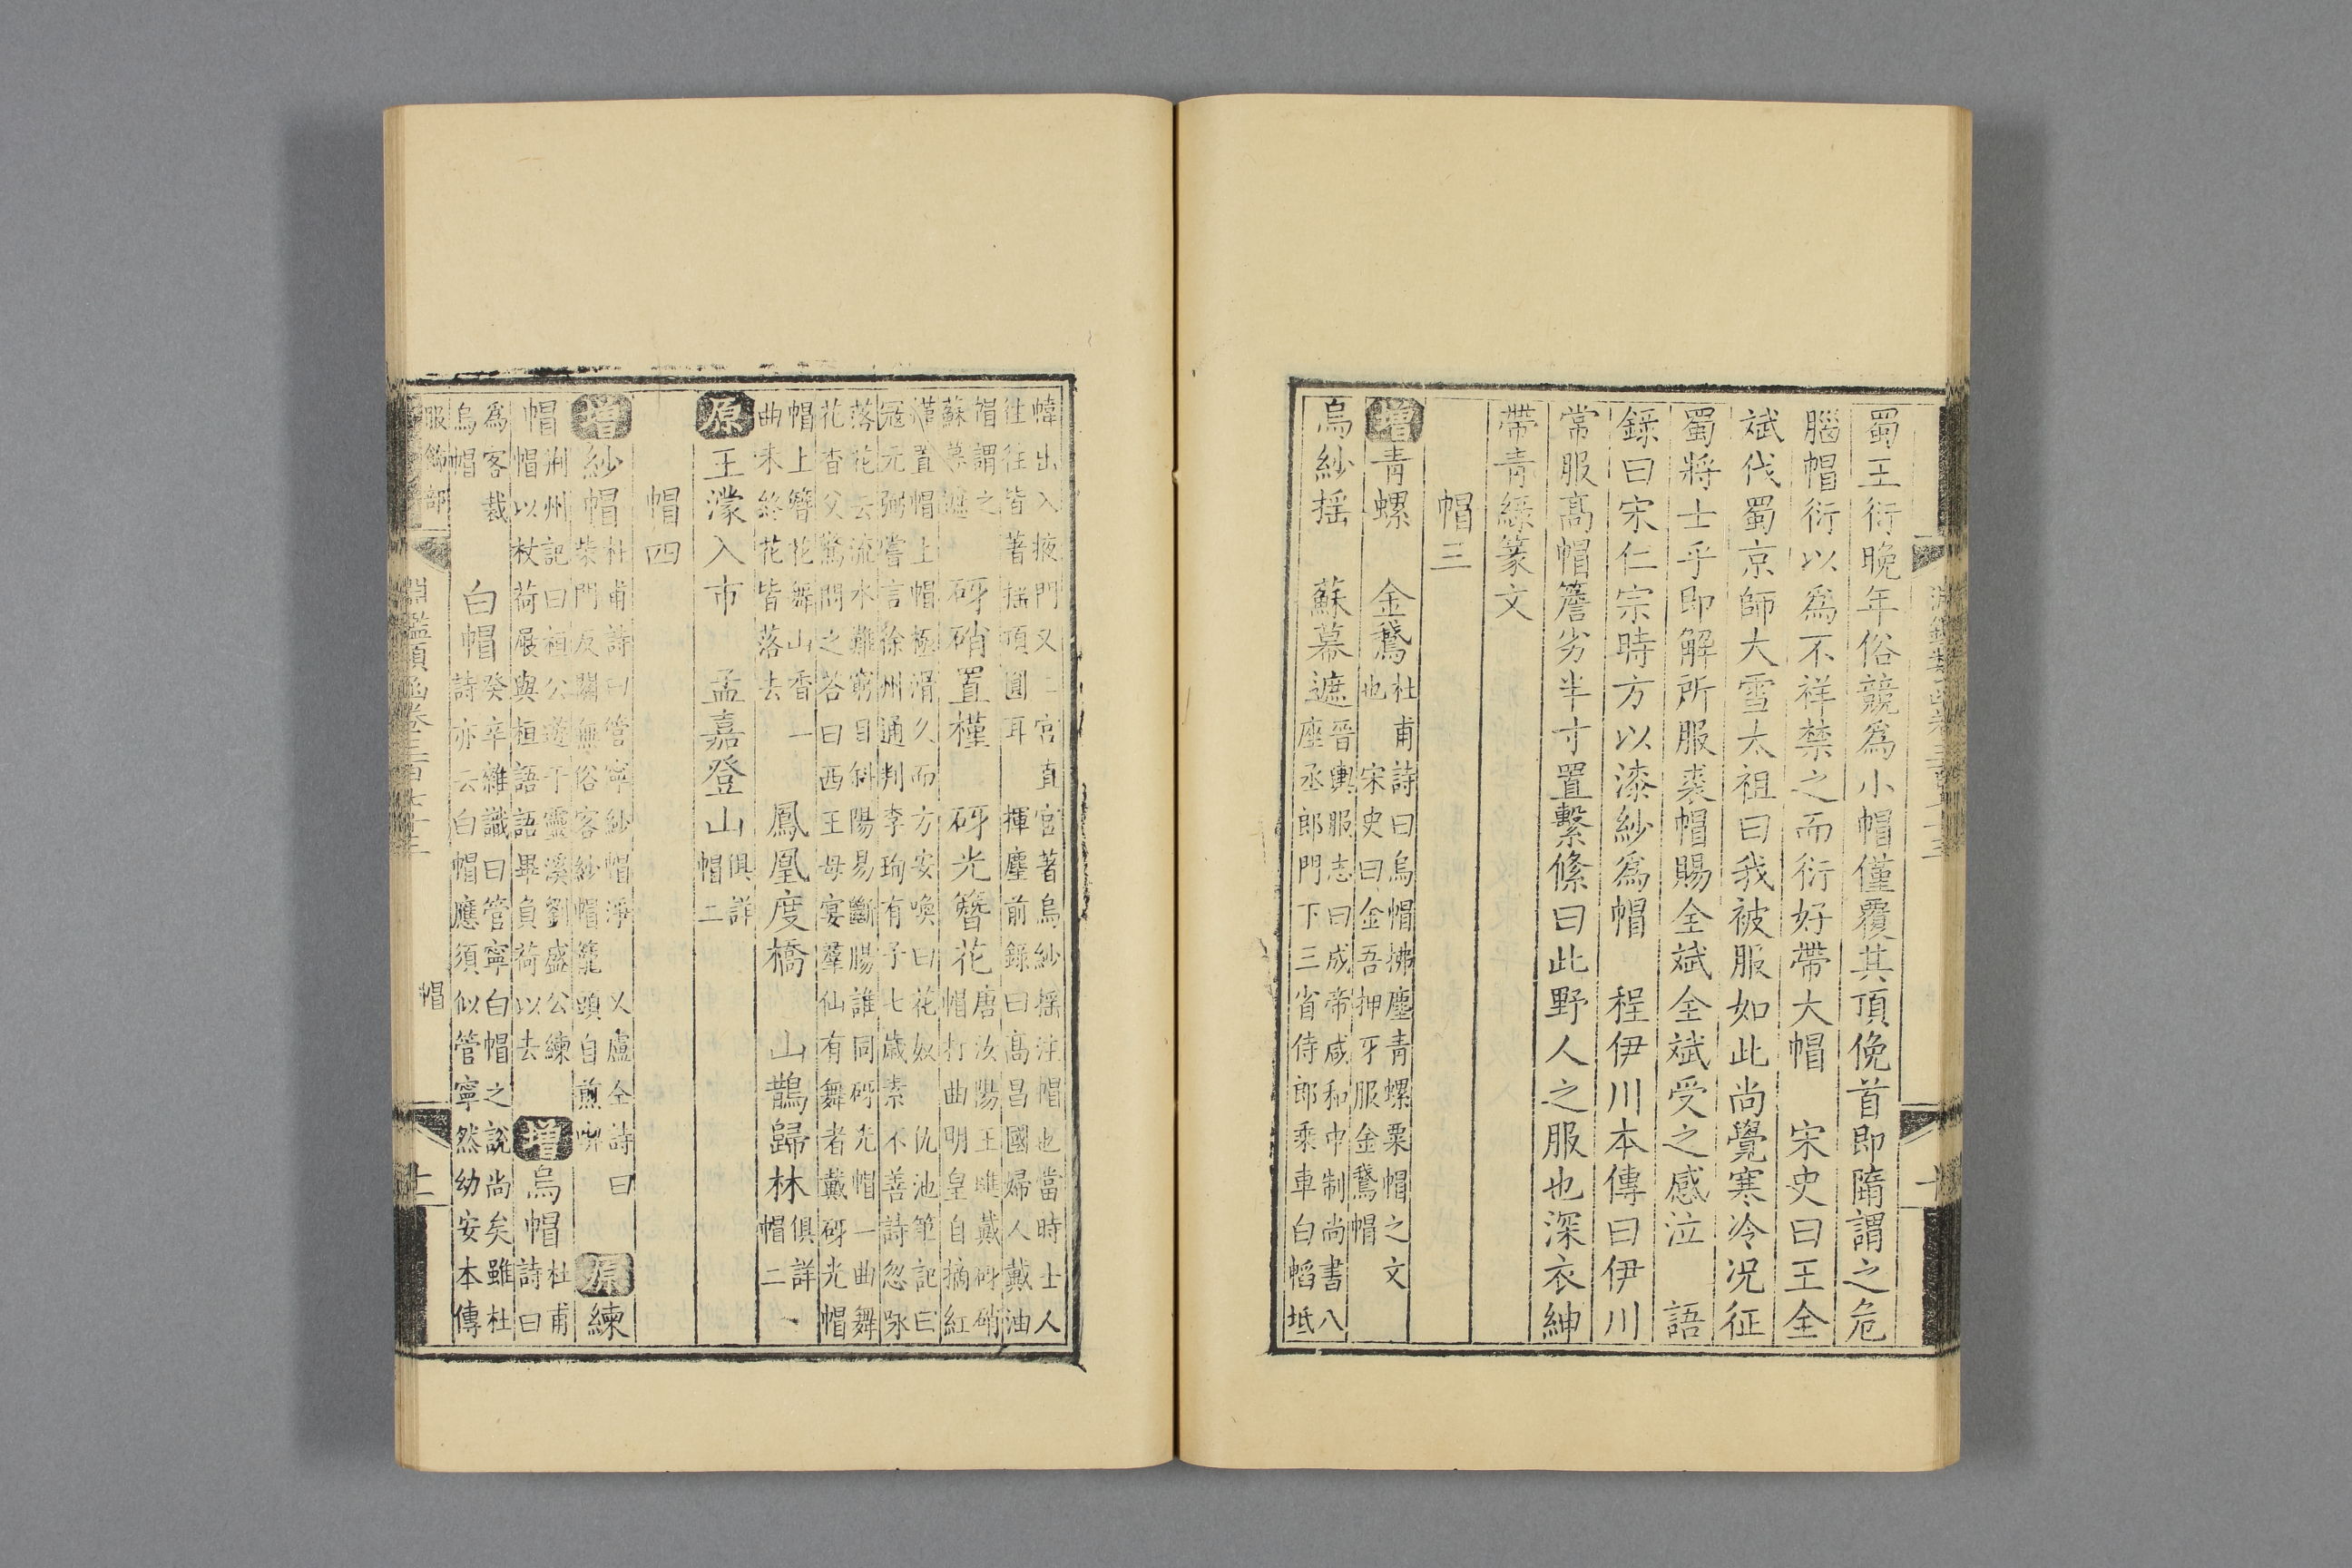 蜀王衍晚年俗競爲小帽僅覆其頂俛首即隋謂之危
腦帽衍以爲不祥禁之而衍好帶大帽　宋史曰王全
斌伐蜀京師大雪太祖曰我被服如此尚覺寒冷况征
蜀將士乎即解所服裘帽賜全斌全斌受之感泣　語
錄曰宋仁宗時方以漆紗爲帽　程伊川本傳曰伊川
常服高帽簷劣半寸置繫絛曰此野人之服也深衣紳
帶青緣篆文
帽三
增青螺　金鵞杜甫詩曰烏帽拂塵青螺粟帽之文
也　宋史曰金吾押牙服金鵞帽
烏紗揺　蘇幕遮晉輿服志曰成帝咸和中制尚書八
座丞郎門下三省侍郎乘車白幍坻
幃出入掖門又二宮直宮著烏紗揺注帽也當時士人
往往皆著揺頂圓耳　揮塵前錄曰高昌國婦人戴油
帽謂之
蘇幕遮　砑硝置槿　砑光簪花唐汝陽王璡戴砑硝
帽打曲明皇自摘紅
槿置帽上帽極滑久而方安喚曰花奴　仇池筆記曰
冦元弼嘗言徐州通判李珣有子七歳素不善詩忽咏
落花去流水難窮目斜陽易斷腸誰同砑光帽一曲舞
花香父驚問之荅曰西王母宴羣仙有舞者戴砑光帽
帽上簪花舞山香一
曲未終花皆落去　鳳凰度橋　山鵲歸林俱詳
帽二
原王濛入市　孟嘉登山俱詳
帽二
帽四
增紗帽杜甫詩曰管寧紗帽淨　又盧仝詩曰
柴門反關無俗客紗帽籠頭自煎喫　原練
帽洲州記曰桓公遊于靈溪劉盛公練
帽以杖荷屐與桓語語畢負荷以去　增烏帽杜甫
詩曰
爲客裁
烏帽　白帽癸辛雜識曰管寧白帽之說尚矣雖杜
詩亦云白帽應須似管寧然幼安本傳
服飾部
淵鑑類函卷三百七十三
帽
十一